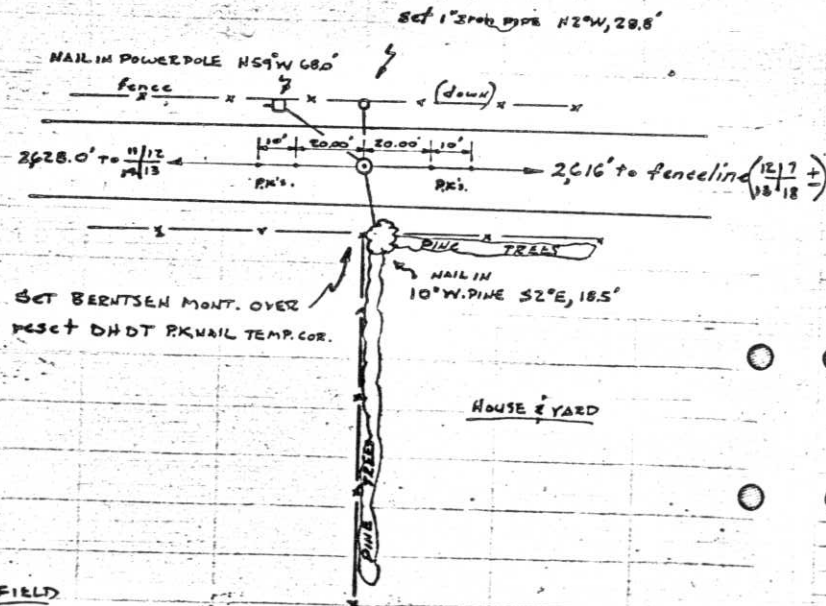 Set 1" Iron PIPE N2°W, 28.8'
NAIL IN POWERPOLE N59°W 68.0'
fence
(down)
10' 20.00' 20.00' 10'
2,628.0' to 11|12
14|13
2,616' to fenceline (12|7
13|18 ±)
P.K's. P.K's.
PINE TREES
NAIL IN
10" W. PINE S2°E, 18.5'
SET BERNTSEN MONT. OVER
reset DHDT P.K NAIL TEMP. COR.
HOUSE & YARD
PINE TREES
FIELD